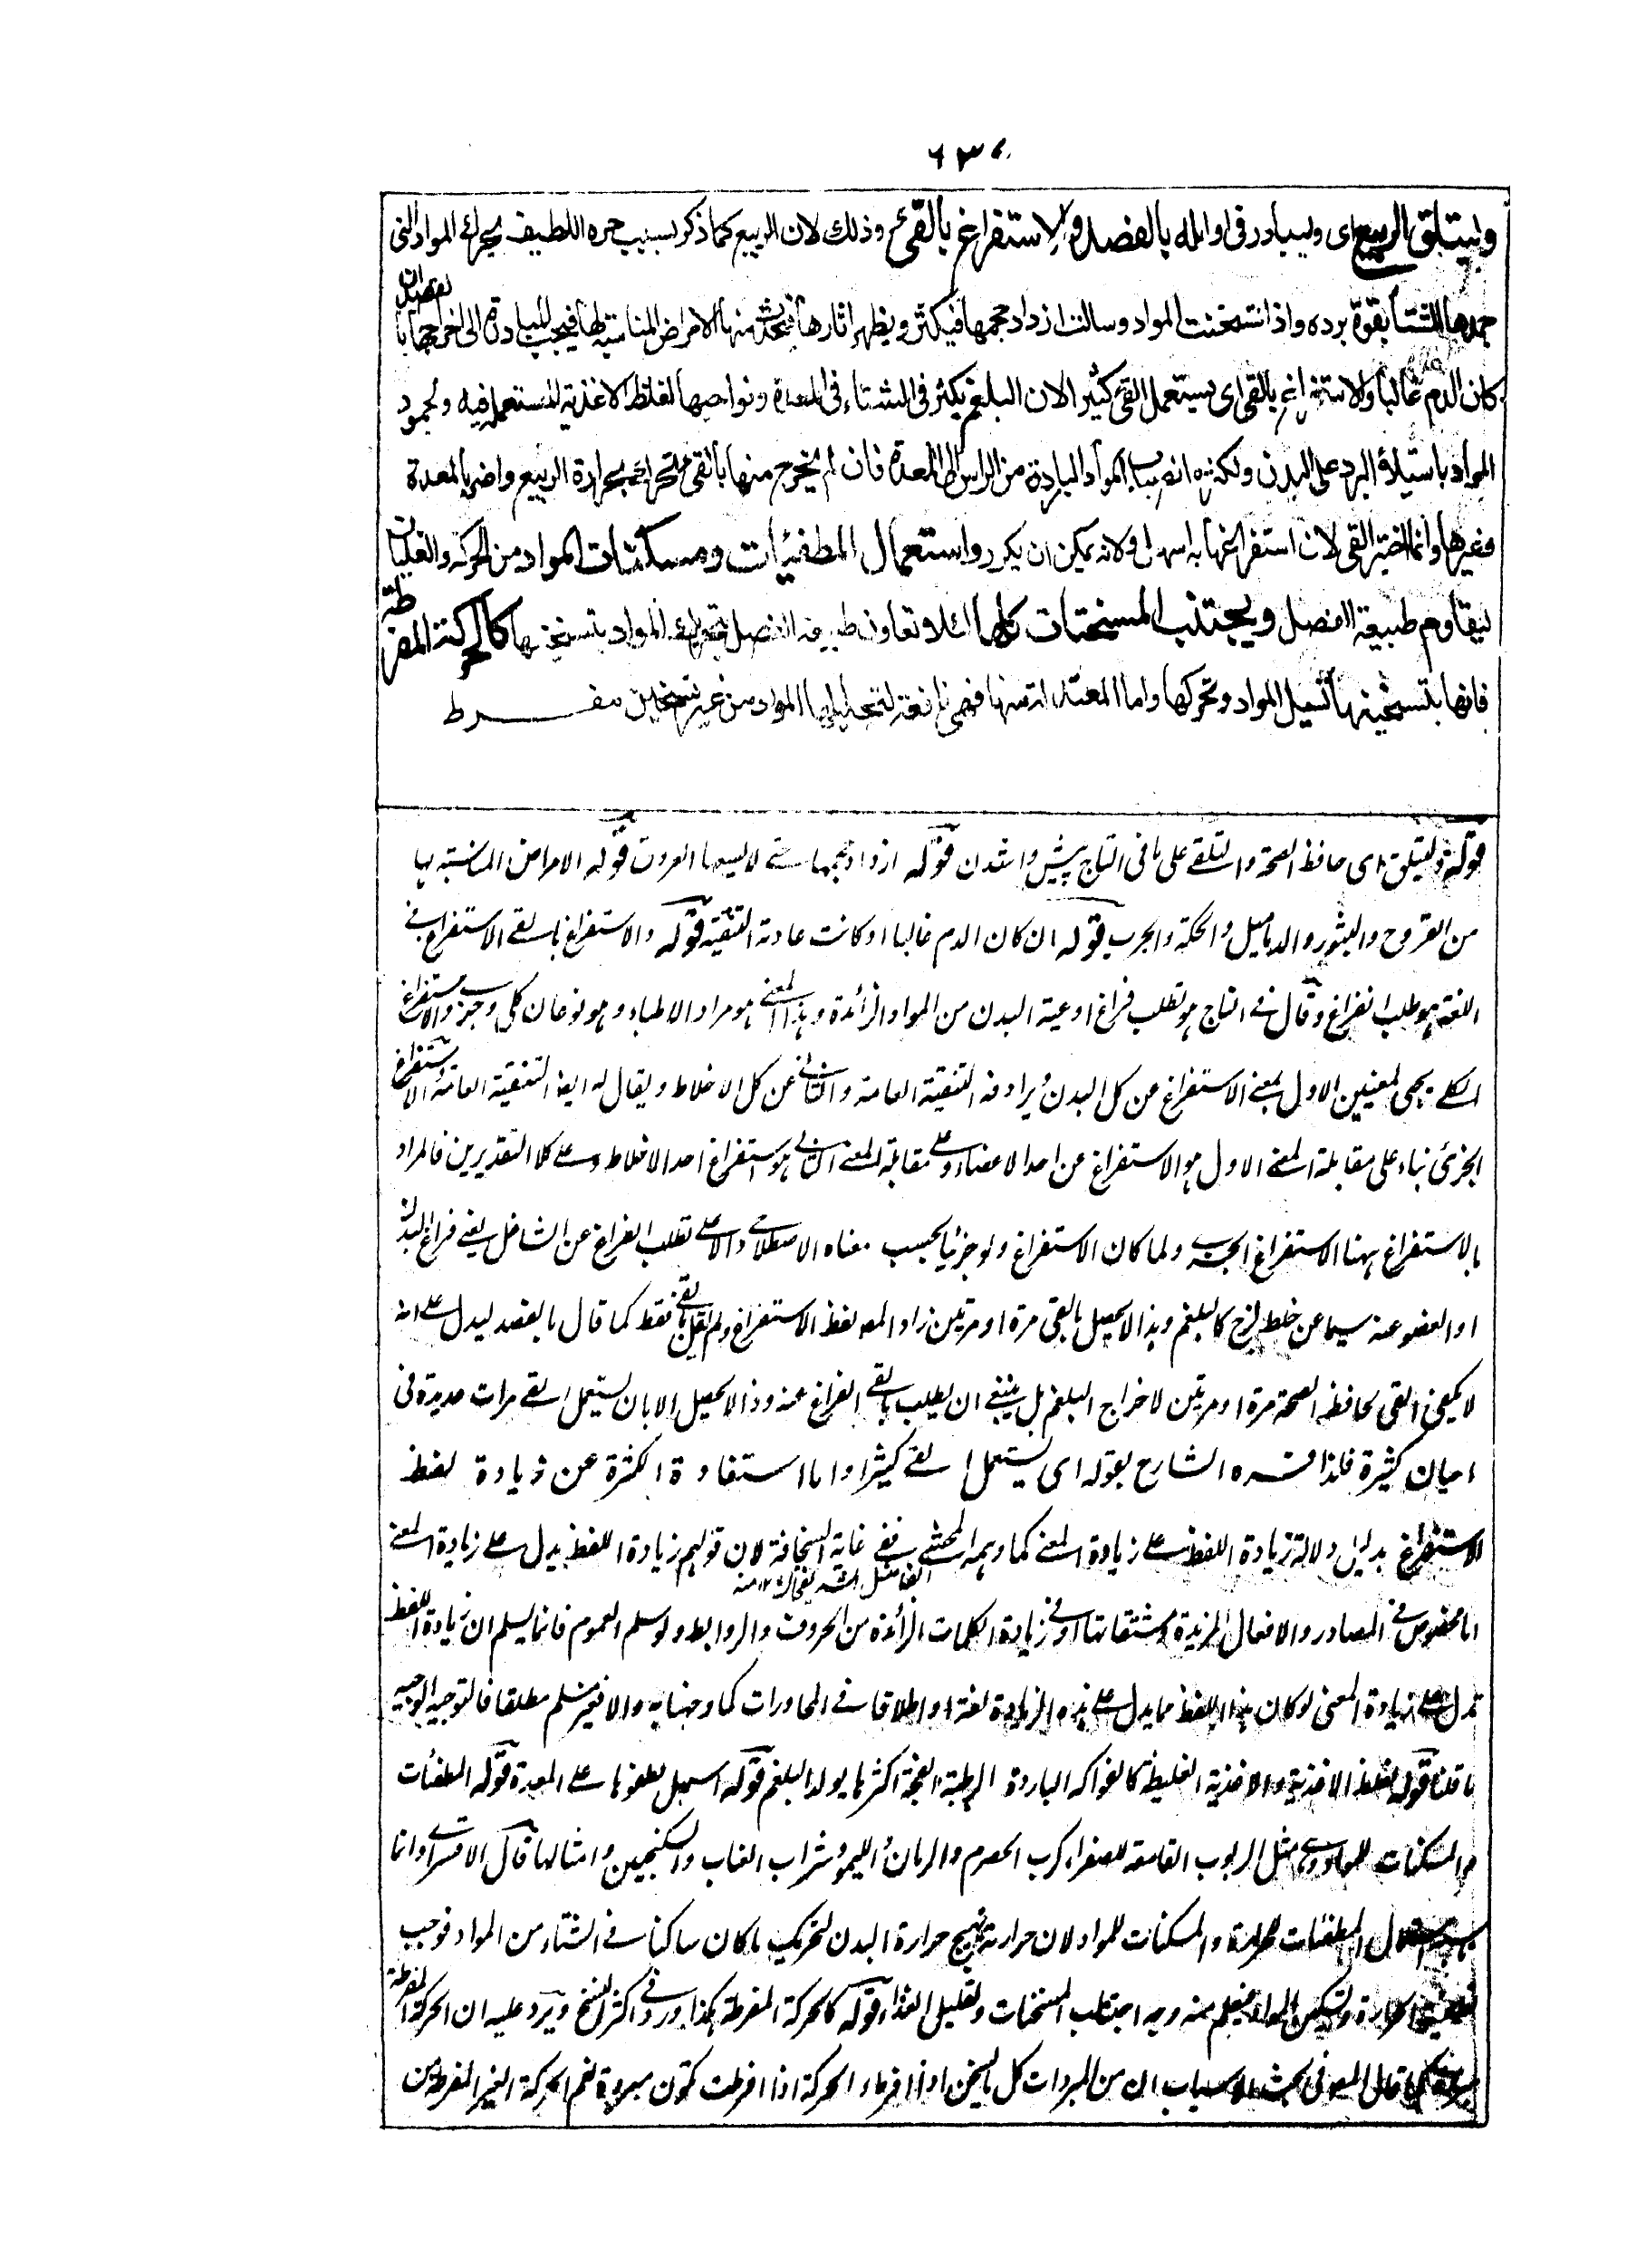 ٦٣٠
وليتلق الربيع اى وليبادر فى اوائله بالفصد والاستفراغ بالقئ وذلك لان الربيع كما ذكر بسبب حره اللطيف يحرك المواد التى
جمدها الشتاء بقوة برده واذا تسخنت المواد وسالت ازداد حجمها فيكثر ويظهر اثارها فتحدث منها الامراض المناسبة لها فيجب المبادرة الى اخراجها بالفصد ان
كان الدم غالبا والاستفراغ بالقى اى يستعمل القى كثيرا لان البلغم يكثر فى الشتاء فى المعدة ونواحيها لغلظ الاغذية المستعملة فيه ولجمود
المواد باستيلاء البرد على البدن ولكثرة انصباب المواد الباردة من الراس الى المعدة فان لم يخرج منها بالقى تتحرك بحرارة الربيع واضر بالمعدة
وغيرها وانما اختير القى لان استفراغها به اسهل ولانه يمكن ان يكرر واستعمال المطفيات ومسكنات المواد من الحركة والغليان
ليقاوم طبيعة الفصل ويجتنب المسخنات كلها لئلا تعاون طبيعة الفصل بتحريك المواد بتسخينها كالحركة المفرطة
فانها بتسخينها تسيل المواد وتحركها واما المعتدلة منها فهى نافعة لتحليلها المواد من غير تسخين مفرط
قوله وليتلق اى حافظ الصحة والتلقى على ما فى التاج پيش واشدن قوله ازداد حجمها حتى لا يسعها العروق قوله الامراض المناسبة لها
من القروح والبثور والدماميل والحكة والجرب قوله ان كان الدم غالبا او كانت عادته التنقية قوله والاستفراغ بالقى الاستفراغ فى
اللغة هو طلب الفراغ وقال فى التاج هو تطلب فراغ اوعية البدن من المواد الزائدة وهذا المعنى هو مراد الاطباء وهو نوعان كلى وجزوى والاستفراغ
الكلى يجى لمعنيين الاول بمعنى الاستفراغ عن كل البدن ويرادفه التنقية العامة والثانى عن كل الاخلاط ويقال له ايضا التنقية العامة والاستفراغ
الجزئى بناء على مقابلة المعنى الاول هو الاستفراغ عن احد الاعضاء وعلى مقابلة المعنى الثانى هو استفراغ احد الاخلاط وعلى كلا التقديرين فالمراد
بالاستفراغ ههنا الاستفراغ الجزئى ولما كان الاستفراغ ولو جزئيا بحسب معناه الاصطلاحى دالا على تطلب الفراغ عن الشاغل يعنى فراغ البدن
او العضو عنه سيما عن خلط لزج كالبلغم وهذا لا يحصل بالقى مرة او مرتين زاد المص لفظ الاستفراغ ولم يقل بالقى فقط كما قال بالفصد ليدل على انه
لا يكفى القى لحافظ الصحة مرة او مرتين لاخراج البلغم بل ينبغى ان يطلب بالقى الفراغ عنه وذا لا يحصل الا بان يستعمل القى مرات عديدة فى
احيان كثيرة فلذا فسره الشارح بقوله اى يستعمل القى كثيرا واما استفادة الكثرة عن زيادة لفظ
الاستفراغ بدليل دلالة زيادة اللفظ على زيادة المعنى كما وهمه المحشى ففى غاية السخافة لان قولهم زيادة اللفظ يدل على زيادة المعنى
اما مخصوص فى المصادر والافعال المزيدة ومشتقاتها او فى زيادة الكلمات الزائدة من الحروف والروابط ولو سلم العموم فانما يسلم ان زيادة اللفظ
تدل على زيادة المعنى لو كان هذا اللفظ مما يدل على هذه الزيادة لغة او اطلاقا فى المحاورات كما وجهنا به والا فغير مسلم مطلقا فالتوجيه الوجيه
ما قلنا قوله لغلظ الاغذية والاغذية الغليظة كالفواكه الباردة الرطبة الفجة اكثرها يولد البلغم قوله اسهل لطفوها على المعدة قوله المطفئات
والمسكنات للمواد وهى مثل الربوب القامعة للصفراء كرب الحصرم والرمان والليمو وشراب العناب والسكنجبين وامثالها قال الاقسرائى وانما
المطفئات للحرارة والمسكنات للمواد لان حرارته تهيج حرارة البدن لتحريك ما كان ساكنا فى الشتاء من المواد فوجب
الحرارة وتسكين المواد فيعلم منه وجه اجتناب المسخنات وتقليل الغذاء قوله كالحركة المفرطة هكذا ورد فى اكثر النسخ ويرد عليه ان الحركة المفرطة
قال المص فى بحث الاسباب ان من المبردات كل ما يسخن اذا افرط والحركة اذا افرطت تكون مبردة نعم الحركة الغير المفرطة من